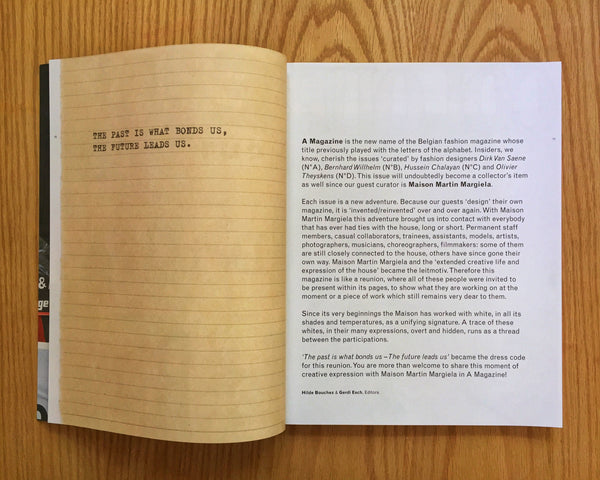 THE PAST IS WHAT BONDS US,
THE FUTURE LEADS US.
&
ge
A Magazine is the new name of the Belgian fashion magazine whose
title previously played with the letters of the alphabet. Insiders, we
know, cherish the issues 'curated' by fashion designers Dirk Van Saene
(N°A), Bernhard Willhelm (N°B), Hussein Chalayan (N°C) and Olivier
Theyskens (N°D). This issue will undoubtedly become a collector's item
as well since our guest curator is Maison Martin Margiela.
Each issue is a new adventure. Because our guests 'design' their own
magazine, it is 'invented/reinvented' over and over again. With Maison
Martin Margiela this adventure brought us into contact with everybody
that has ever had ties with the house, long or short. Permanent staff
members, casual collaborators, trainees, assistants, models, artists,
photographers, musicians, choreographers, filmmakers: some of them
are still closely connected to the house, others have since gone their
own way. Maison Martin Margiela and the 'extended creative life and
expression of the house' became the leitmotiv. Therefore this
magazine is like a reunion, where all of these people were invited to
be present within its pages, to show what they are working on at the
moment or a piece of work which still remains very dear to them.
Since its very beginnings the Maison has worked with white, in all its
shades and temperatures, as a unifying signature. A trace of these
whites, in their many expressions, overt and hidden, runs as a thread
between the participations.
'The past is what bonds us – The future leads us' became the dress code
for this reunion. You are more than welcome to share this moment of
creative expression with Maison Martin Margiela in A Magazine!
Hilde Bouchez & Gerdi Esch, Editors.